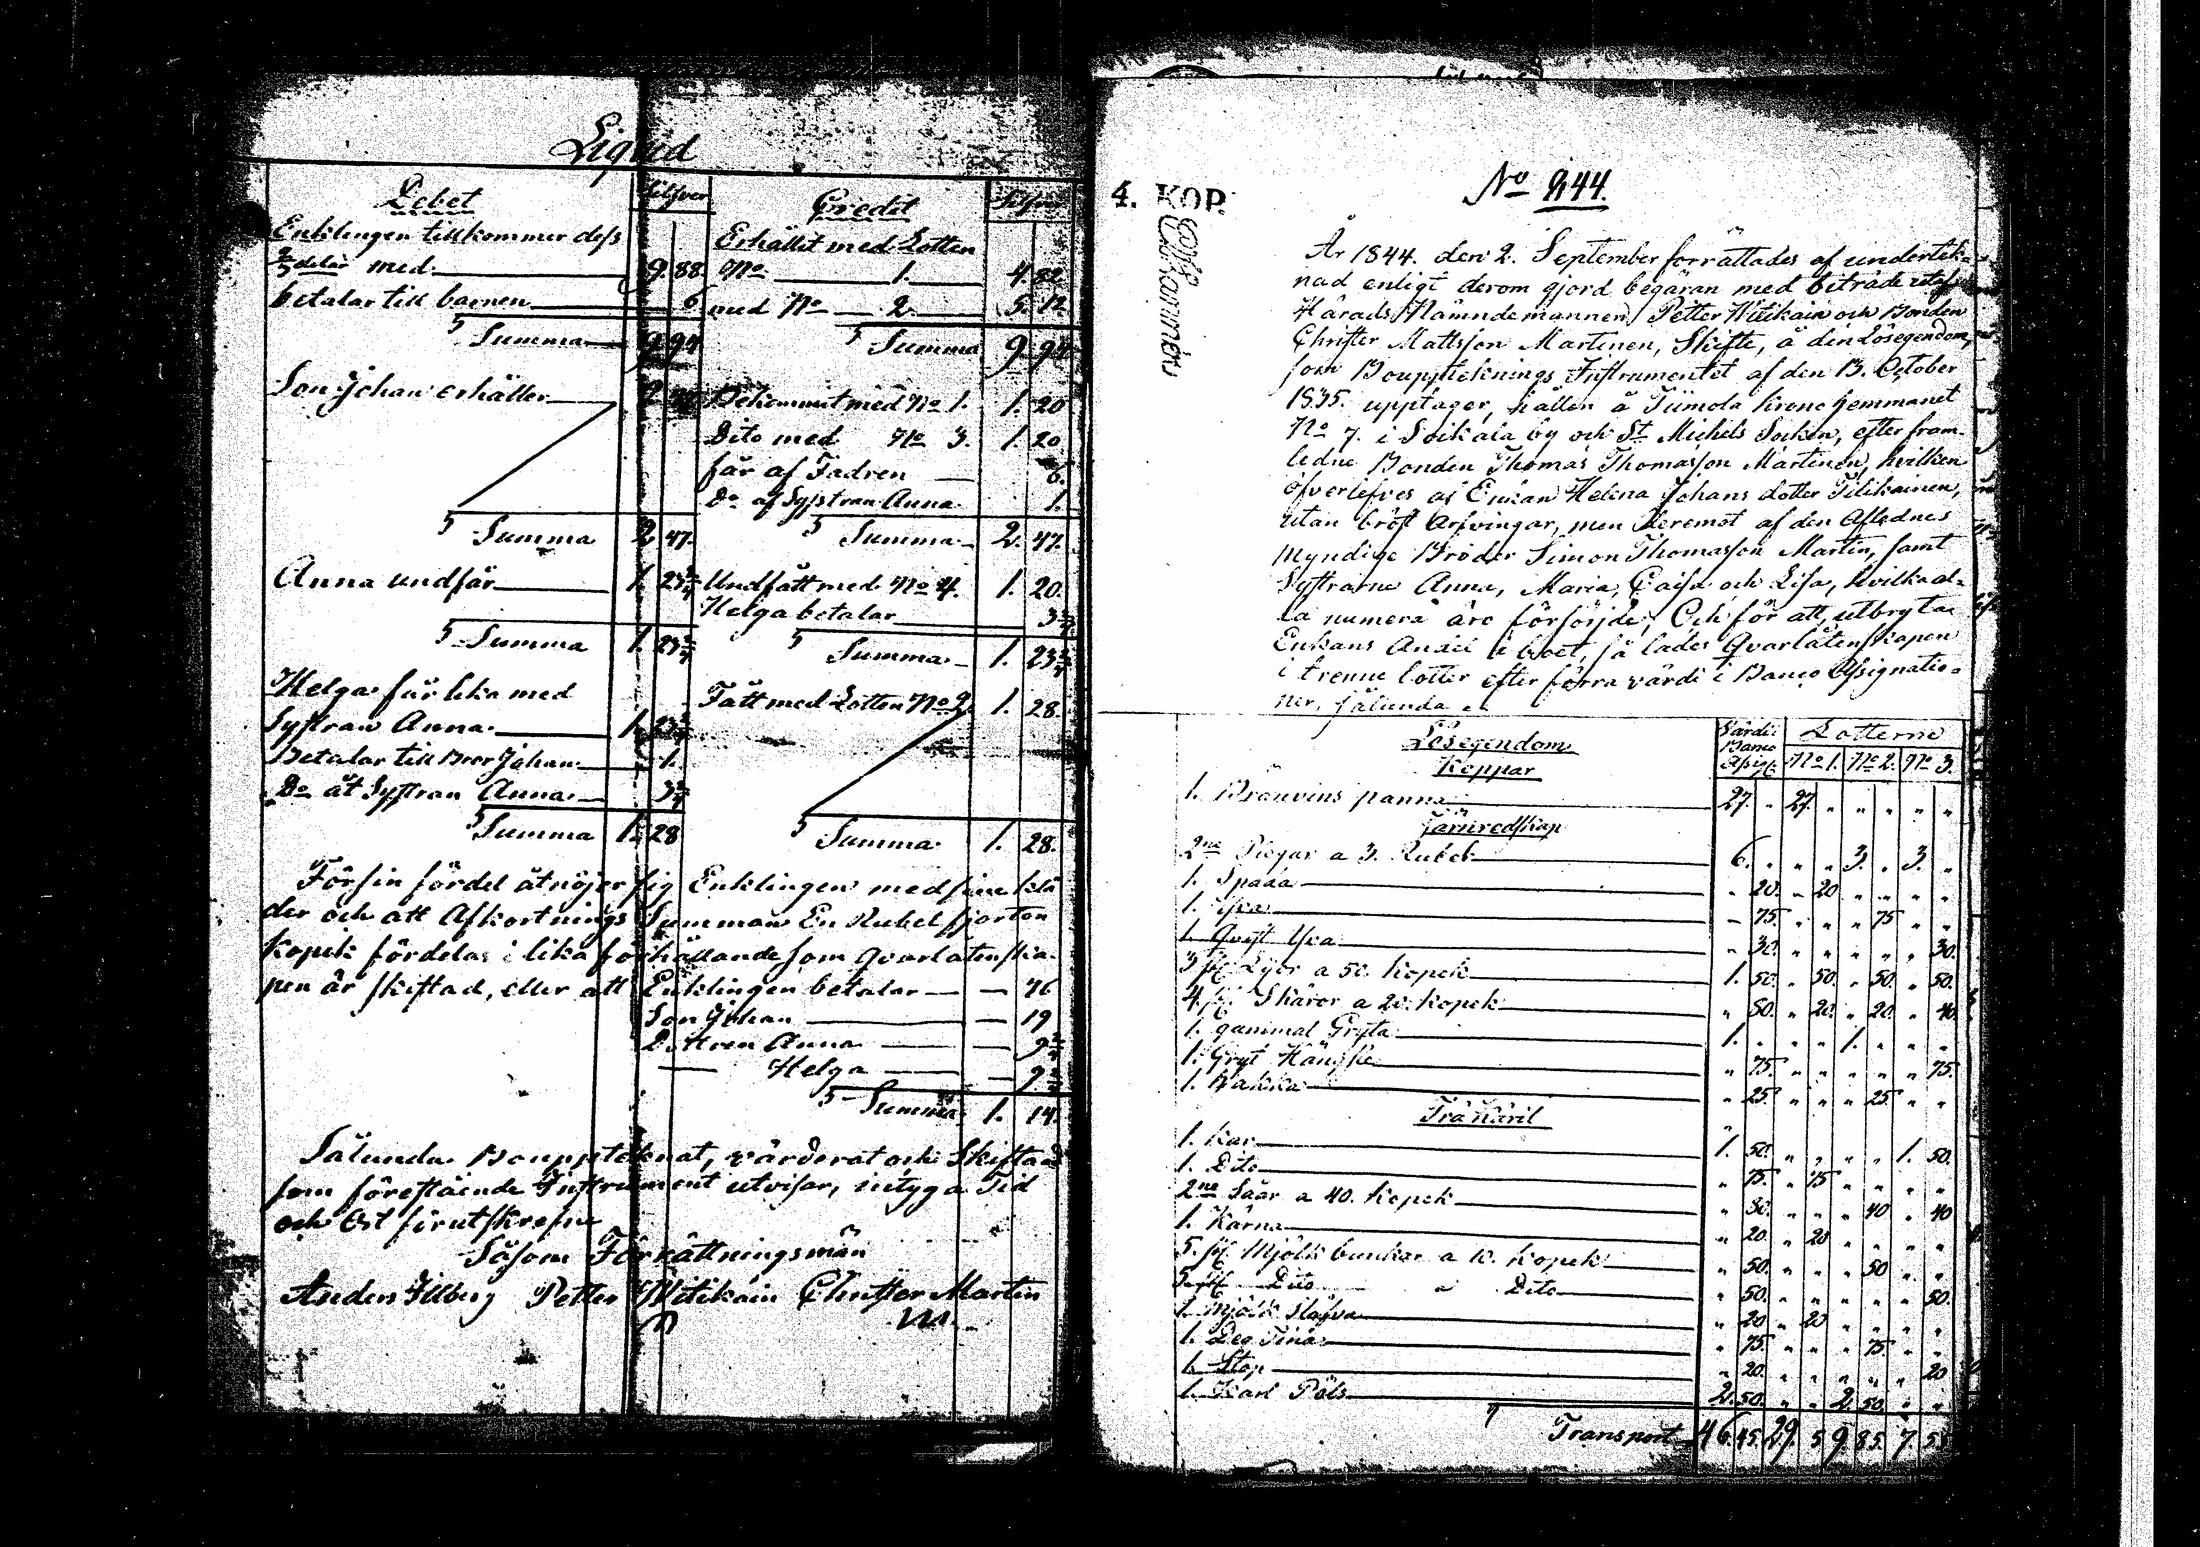 Liqvid
Debet
Silfver
Credit
Enklingen tillkommer dess
Erhållit med Lotten
delar med 9. 88.
No 1. 4. 82
betalar till barnen 6
med No 2. 5. 12
Summa 9 94
Summa 9. 94
Son Johan erhåller 2 47
Bekommit med No 1. 1. 20
Dito med No 3. 1. 20
får af Fadren 6.
Do af Systran Anna 1.
Summa 2 47.
Summa 2. 47.
Anna undfår 1. 23¾
Undfått med No 4. 1. 20.
Helga betalar 3¾
Summa 1. 23¾
Summa 1. 23¾
Helga får lika med
Fått med Lotten No 2. 1. 28.
Systran Anna 1. 23¾
Betalar till Bror Johan 1.
Do åt Systran Anna 3¾
Summa 1. 28
Summa 1. 28.
För sin fördel åtnöjer sig Enklingen med sine klä
der och att Afkortnings Summan En Rubel fjorton
Kopek fördelas i lika förhållande som qvarlåtenska-
pen är skiftad, eller att Enklingen betalar — 76
Son Johan — 19
Dottren Anna — 9½
— Helga — 9½
Summa 1. 14.
Sålunda Bouppteknat, värderat och Skiftad
som förestående Instrument utvisar, intyga Tid
och Ort förutskrefne
Såsom Förrättningsmän
Anders Illberg Petter Witikain Christer Martin
4. KOP.
No 244.
År 1844. den 2. September förrättades af undertek-
nad enligt derom gjord begäran med biträde utaf
Härads Nämndemannen Petter Witikain och Bonden
Christer Mattsson Martinen, Skifte, å den Lösegendom,
som Bouppteknings Instrumentet af den 13. October
1835. upptager, hållen å Tiimola Krono hemmanet
No 7. i Soikala by och St Michels Socken, efter fram-
ledne Bonden Thomas Thomasson Martinen, hvilken
öfverlefves af Enkan Helena Johans dotter Tilikainen,
utan bröst Arfvingar, men deremot af den Aflednes
Myndige Broder Simon Thomasson Martin, samt
Systrarne Anna, Maria, Caisa och Lisa, hvilka al-
la numera äro försörjde; Och för att utbryta
Enkans Andel i boet, så lades Qvarlåtenskapen
i trenne lotter efter förra värde i Banco Assignatio-
ner, sålunda
Lösegendom
Värde: Banco Assig:
Lotterne
No 1. No 2. No 3.
Koppar
1. Bränvins panna 27. " 27. " " " " "
Järnredskap
2ne Plogar a 3. Rubel 6. " " " 3. " 3. "
1. Spada " 20. " 20 " " " "
1. Yxa " 75. " " " 75 " "
1. Qvist Yxa " 30. " " " " " 30.
3 st. Lijor a 50. Kopek 1. 50. " 50. " 50. " 50.
4. st. Skäror a 20. Kopek " 80. " 20. " 20. " 40.
1. gammal Gryta 1. " " " 1. " " "
1. Gryt Hängsle " 75. " " " " " 75.
1. Kakka " 25. " " " 25. " "
Trä Käril
1. Kar 1. 50. " " " " 1. 50.
1. Dito " 75. " 75 " " " "
2ne Såar a 40. Kopek " 80. " " " 40 " 40
1. Kärna " 20. " 20 " " " "
5. st. Mjölk bunkar a 10. Kopek " 50. " " " 50 " "
5. st. Dito a Dito " 50. " " " " " 50.
1. Mjölk Stäfva " 20 " 20 " " " "
1. Deg Tina " 75. " " " 75. " "
1. Stop " 20. " " " " " 20
1. Karl Päls 2. 50. " " 2. 50. " "
Transport 46. 45. 29. 5 9. 85. 7. 55